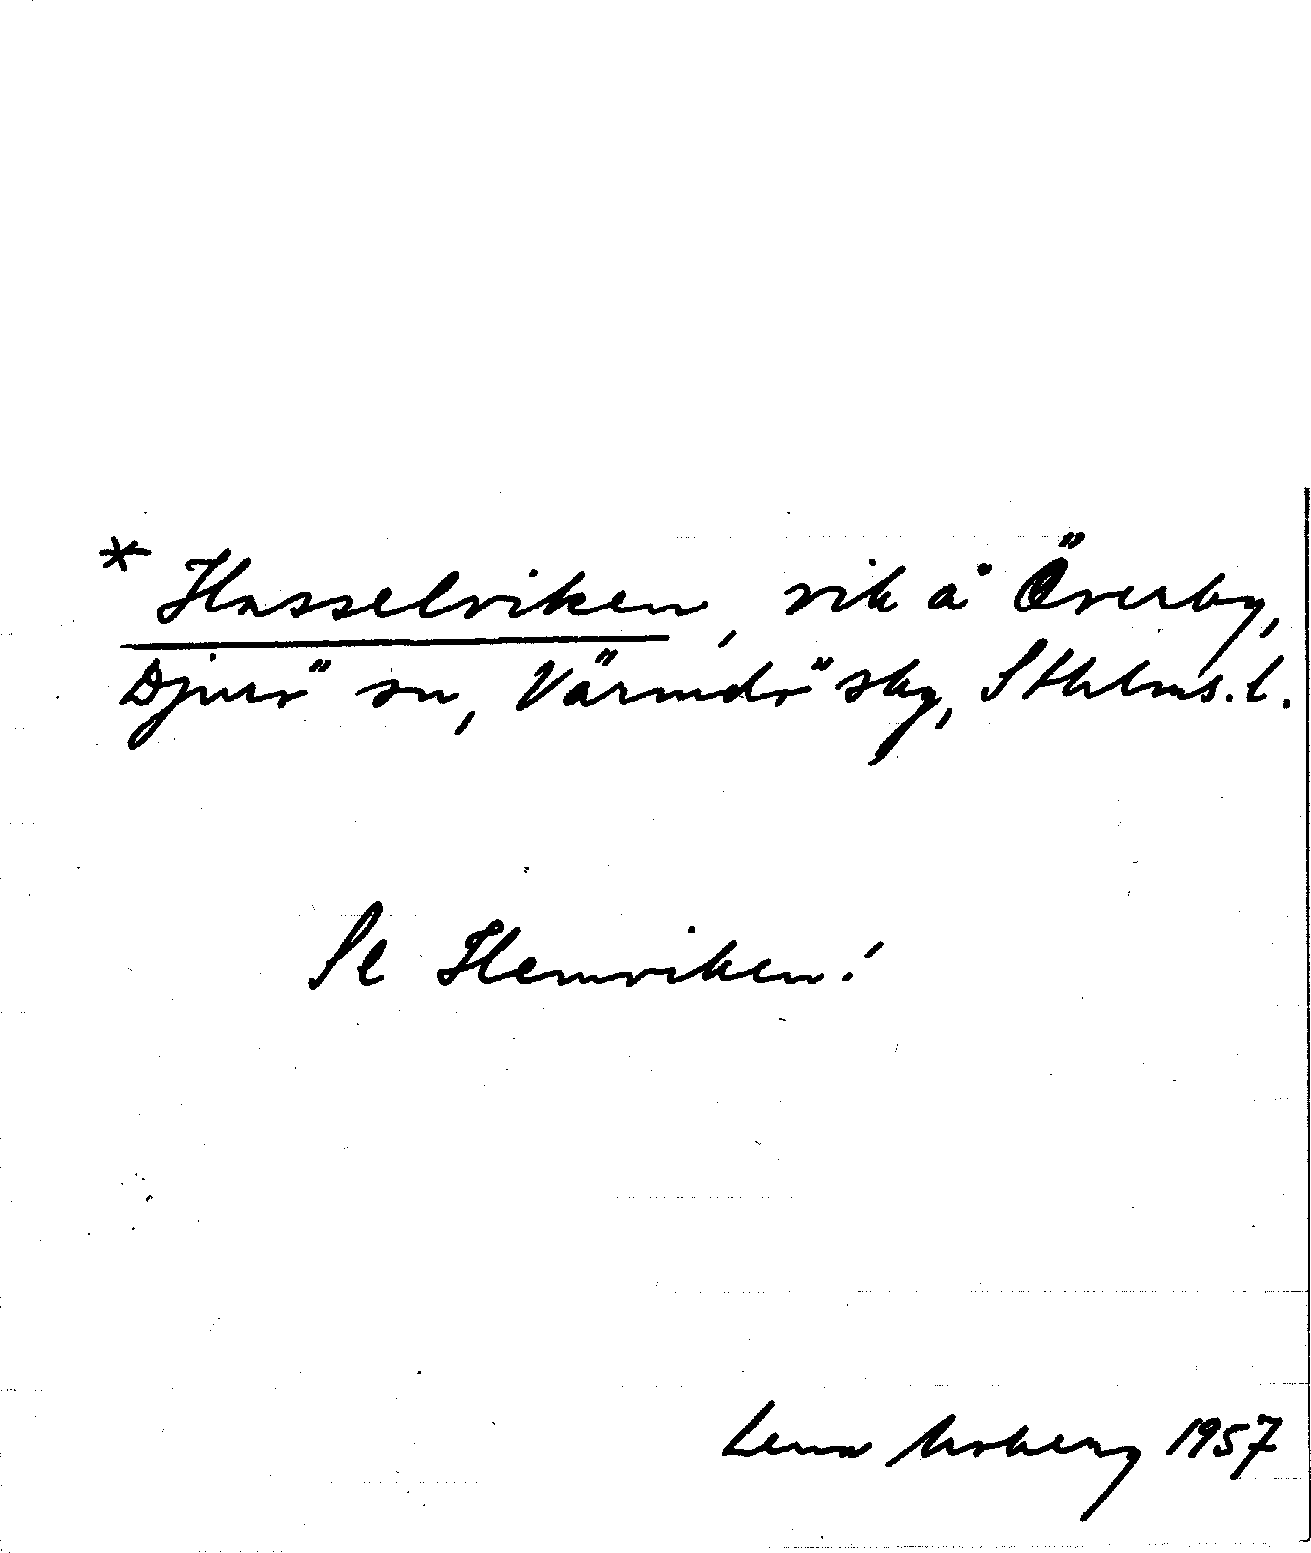 * Hasselviken, vik å Överby,
Djurö sn, Värmdö sky, Sthlms. l.
Se Hemviken!
Lena Moberg 1957